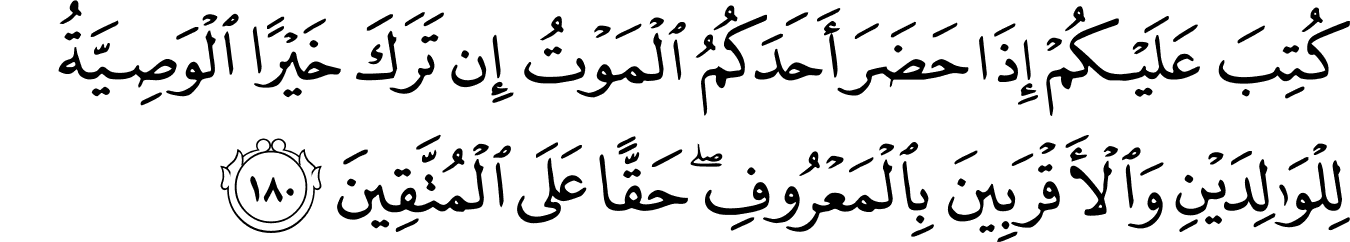 كُتِبَ عَلَيْكُمْ إِذَا حَضَرَ أَحَدَكُمُ ٱلْمَوْتُ إِن تَرَكَ خَيْرًا ٱلْوَصِيَّةُ
لِلْوَٰلِدَيْنِ وَٱلْأَقْرَبِينَ بِٱلْمَعْرُوفِ ۖ حَقًّا عَلَى ٱلْمُتَّقِينَ ١٨٠